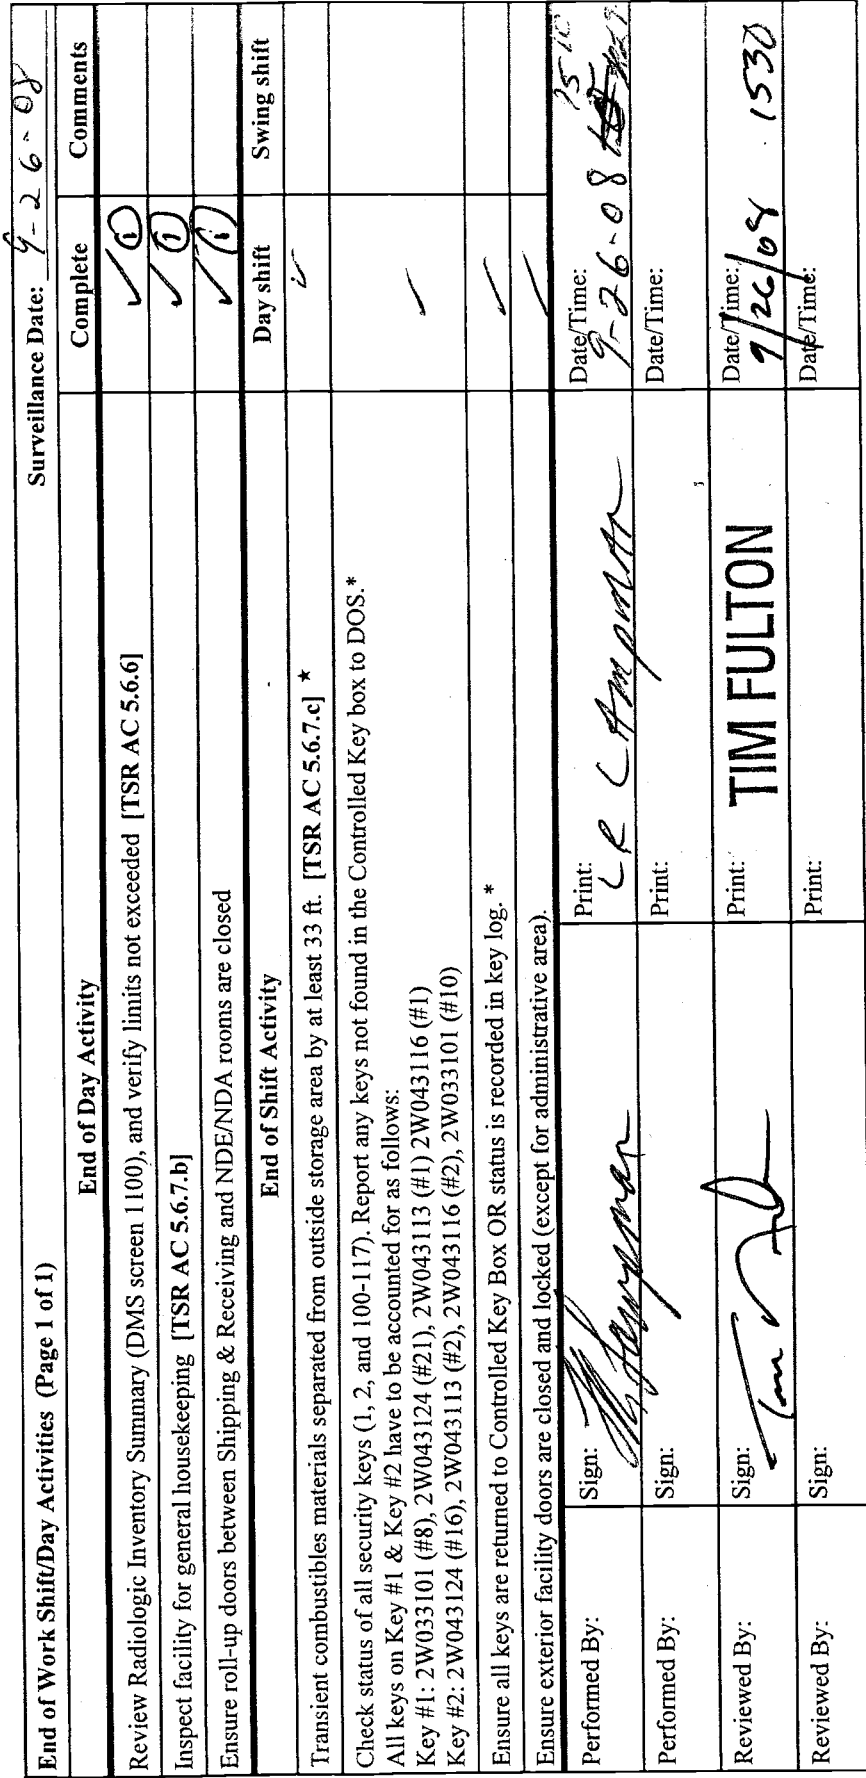 End of Work Shift/Day Activities (Page 1 of 1) Surveillance Date: 9-26-08
End of Day Activity Complete Comments
Review Radiologic Inventory Summary (DMS screen 1100), and verify limits not exceeded [TSR AC 5.6.6] ✓ ①
Inspect facility for general housekeeping [TSR AC 5.6.7.b] ✓ ①
Ensure roll-up doors between Shipping & Receiving and NDE/NDA rooms are closed ✓ ①
End of Shift Activity Day shift Swing shift
Transient combustibles materials separated from outside storage area by at least 33 ft. [TSR AC 5.6.7.c] ★ ✓
Check status of all security keys (1, 2, and 100-117). Report any keys not found in the Controlled Key box to DOS.*
All keys on Key #1 & Key #2 have to be accounted for as follows:
Key #1: 2W033101 (#8), 2W043124 (#21), 2W043113 (#1) 2W043116 (#1) ✓
Key #2: 2W043124 (#16), 2W043113 (#2), 2W043116 (#2), 2W033101 (#10)
Ensure all keys are returned to Controlled Key Box OR status is recorded in key log. * ✓
Ensure exterior facility doors are closed and locked (except for administrative area). ✓
Performed By: Sign: Print: LR LAmpmAn Date/Time: 9-26-08 1510
Performed By: Sign: Print: Date/Time:
Reviewed By: Sign: Print: TIM FULTON Date/Time: 9/26/08 1530
Reviewed By: Sign: Print: Date/Time: